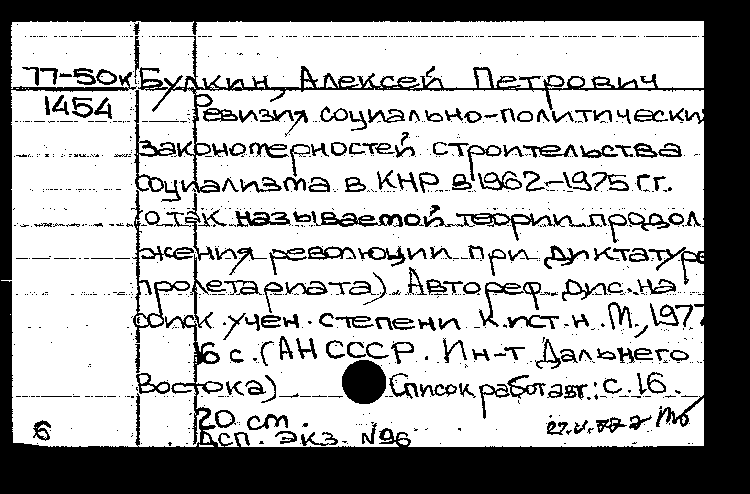 77-50к Булкин, Алексей Петрович
1454 Ревизия социально-политически
закономерностей строительства
социализма в КНР в 1962-1975 гг.
(о так называемой теории продол
жения революции при диктатуре
пролетариата). Автореф. дис. на
соиск. учен. степени к.ист.н. М., 1977
16 с. (АН СССР. Ин-т Дальнего
Востока) Список работ авт.: с. 16.
20 см.
б ДСП. экз. №96